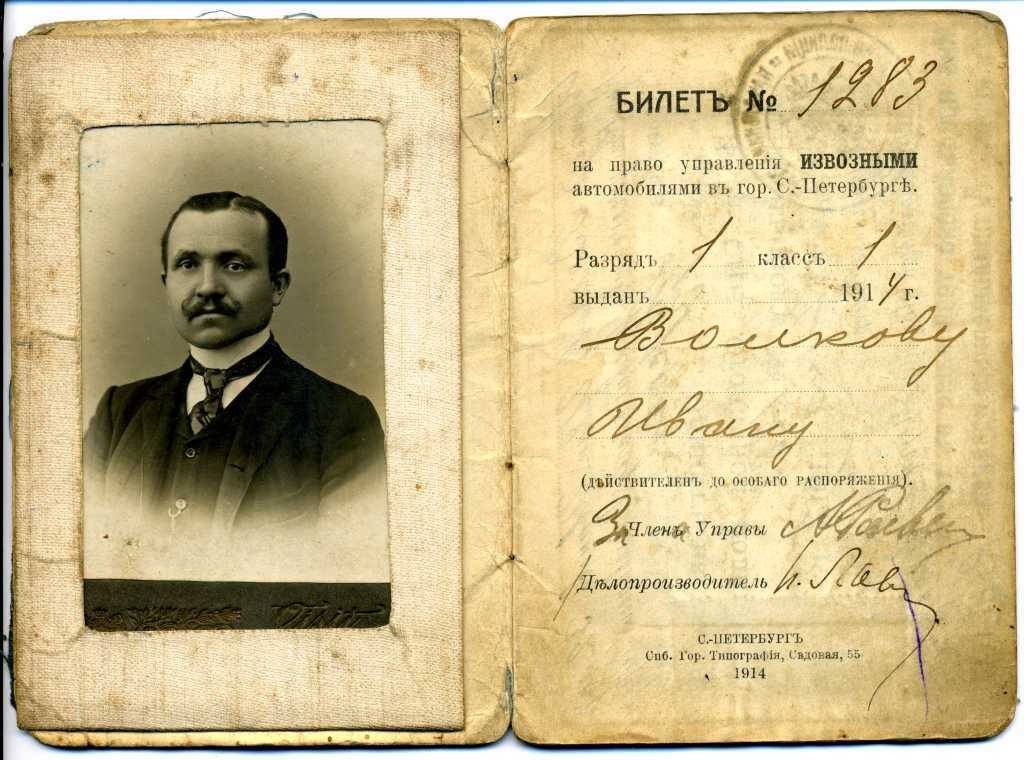 БИЛЕТЪ № 1283
на право управленія ИЗВОЗНЫМИ
автомобилями въ гор. С.-Петербургѣ.
Разрядъ 1 классъ 1
выданъ 1914 г.
Волкову
Ивану
(дѣйствителенъ до особаго распоряженія).
За Членъ Управы
Дѣлопроизводитель
С.-ПЕТЕРБУРГЪ
Спб. Гор. Типографія, Садовая, 55
1914